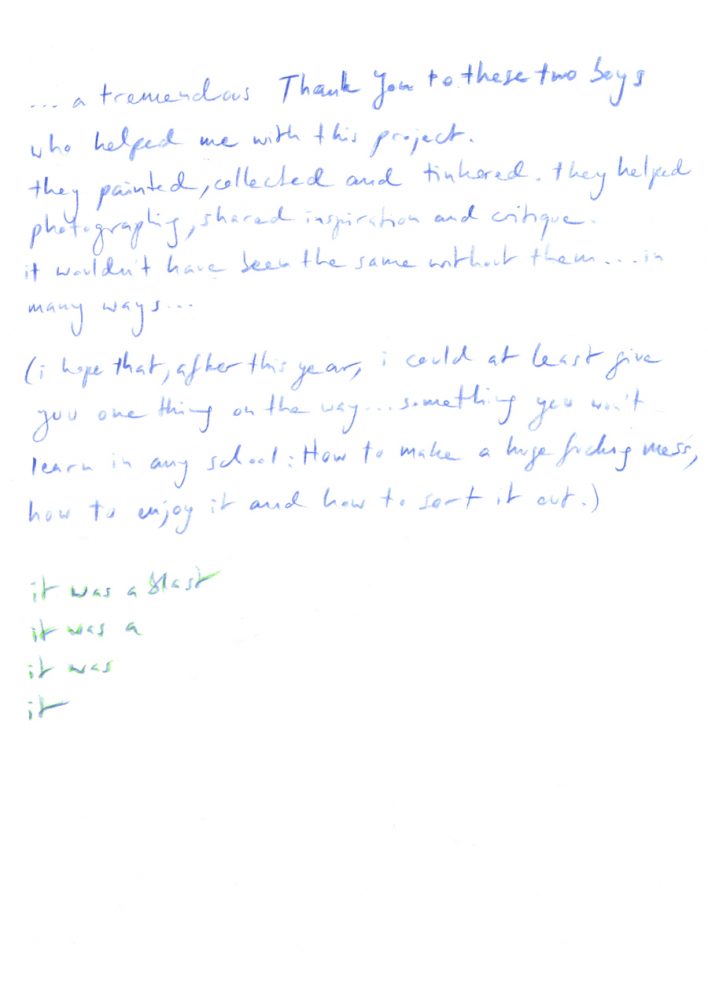 ... a tremendous Thank You to these two boys
who helped me with this project.
they painted, collected and tinkered. they helped
photographing, shared inspiration and critique.
it wouldn't have been the same without them... in
many ways...
(i hope that, after this year, i could at least give
you one thing on the way... something you won't
learn in any school: How to make a huge fucking mess,
how to enjoy it and how to sort it out.)
it was a blast
it was a
it was
it